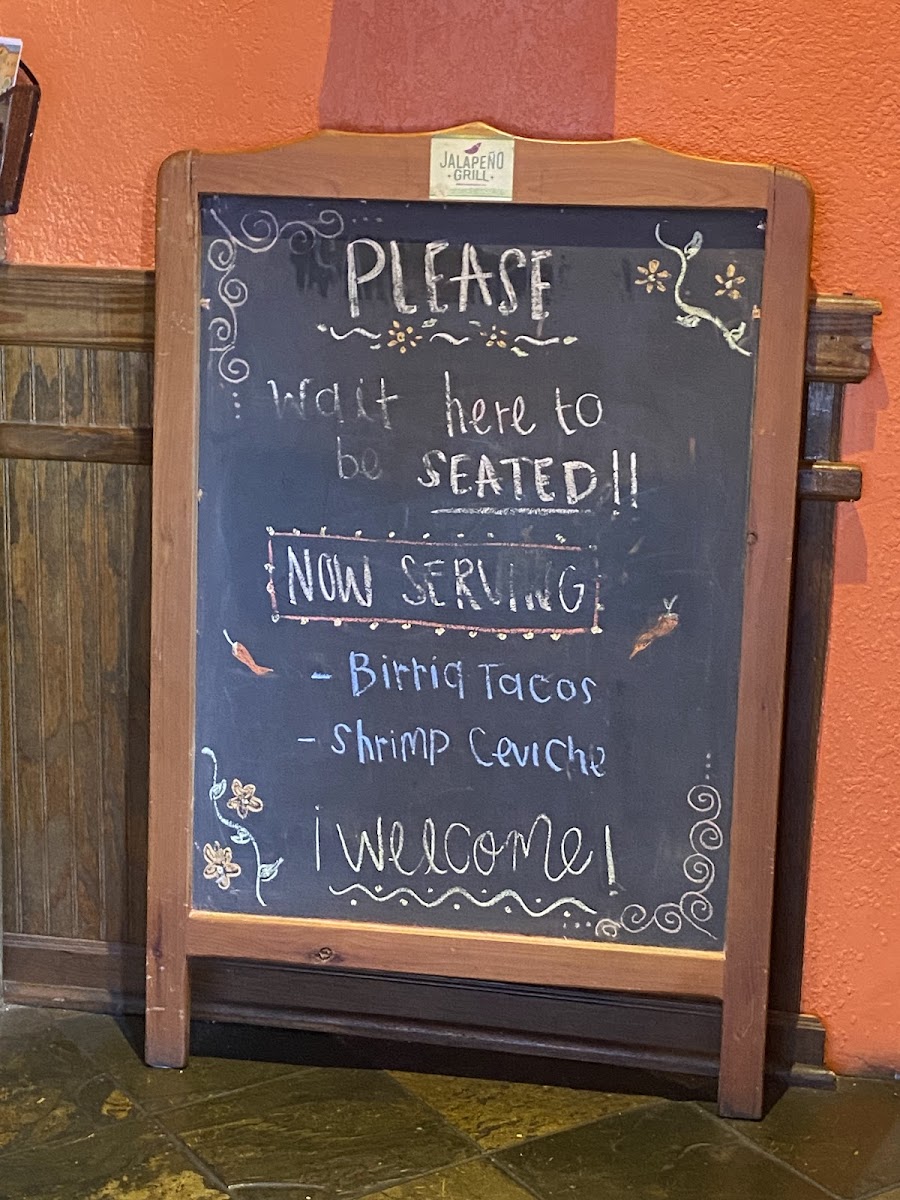 JALAPEÑO
GRILL
PLEASE
wait here to
be SEATED!!
NOW SERVING
- Birria Tacos
- Shrimp Ceviche
¡welcome!